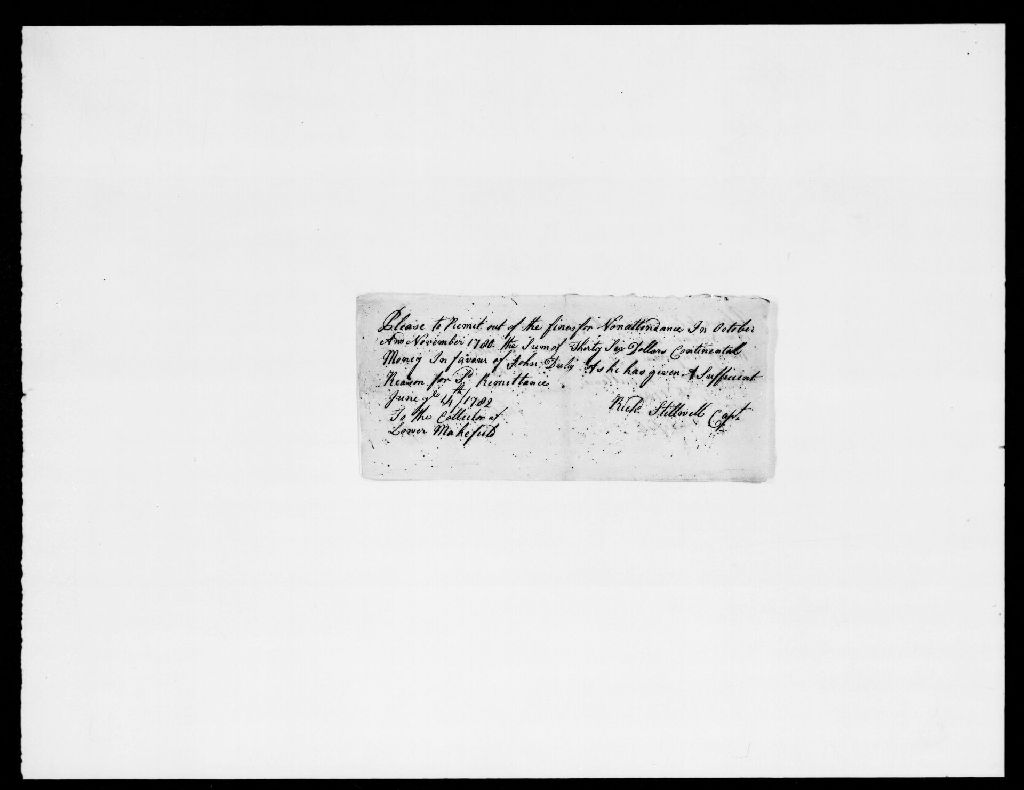 Please to Remit out of the fines for Nonattendance In October
And November 1780 the Sum of Thirty Six Dollars Continental
Money In favour of John As he has given A Sufficient
Reason for Sd Remittance
June ye 14th / 1782
Richd Stillwell Capt
To the Collector of
Lower Makefield